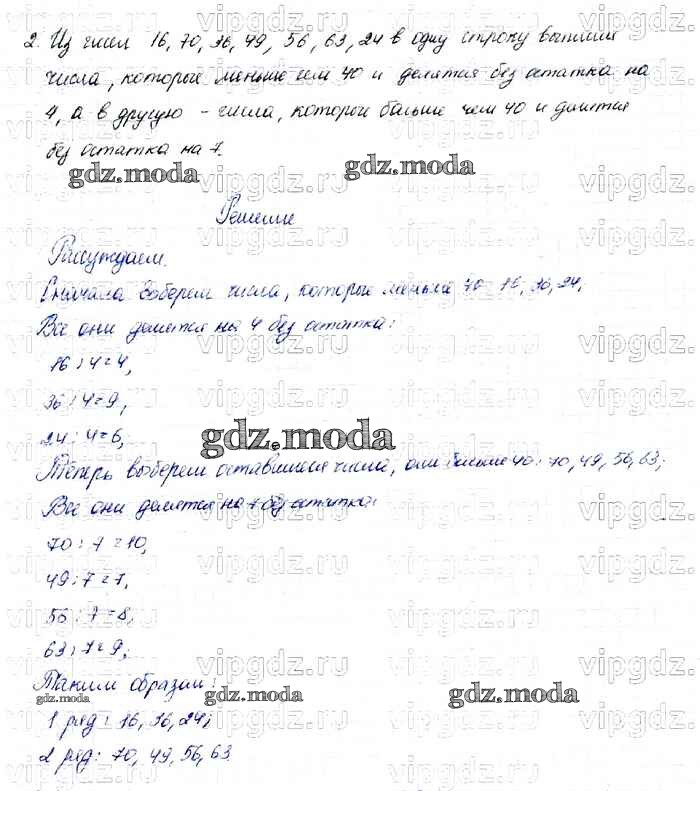 2. Из чисел 16, 70, 36, 49, 56, 63, 24 в одну строку выпиши
числа, которые меньше чем 40 и делятся без остатка на
4, а в другую - числа, которые больше чем 40 и делятся
без остатка на 7.
Решение
Рассуждаем.
Сначала выберем числа, которые меньше 40 16, 36, 24,
Все они делятся на 4 без остатка:
16 : 4 = 4,
36 : 4 = 9,
24 : 4 = 6,
Теперь выберем оставшиеся числа, они больше 40: 70, 49, 56, 63;
Все они делятся на 7 без остатка:
70 : 7 = 10,
49 : 7 = 7,
56 : 7 = 8,
63 : 7 = 9;
Таким образом:
1 ряд: 16, 36, 24;
2 ряд: 70, 49, 56, 63.
gdz.moda
gdz.moda
gdz.moda
gdz.moda
gdz.moda
gdz.moda
vipgdz.ru